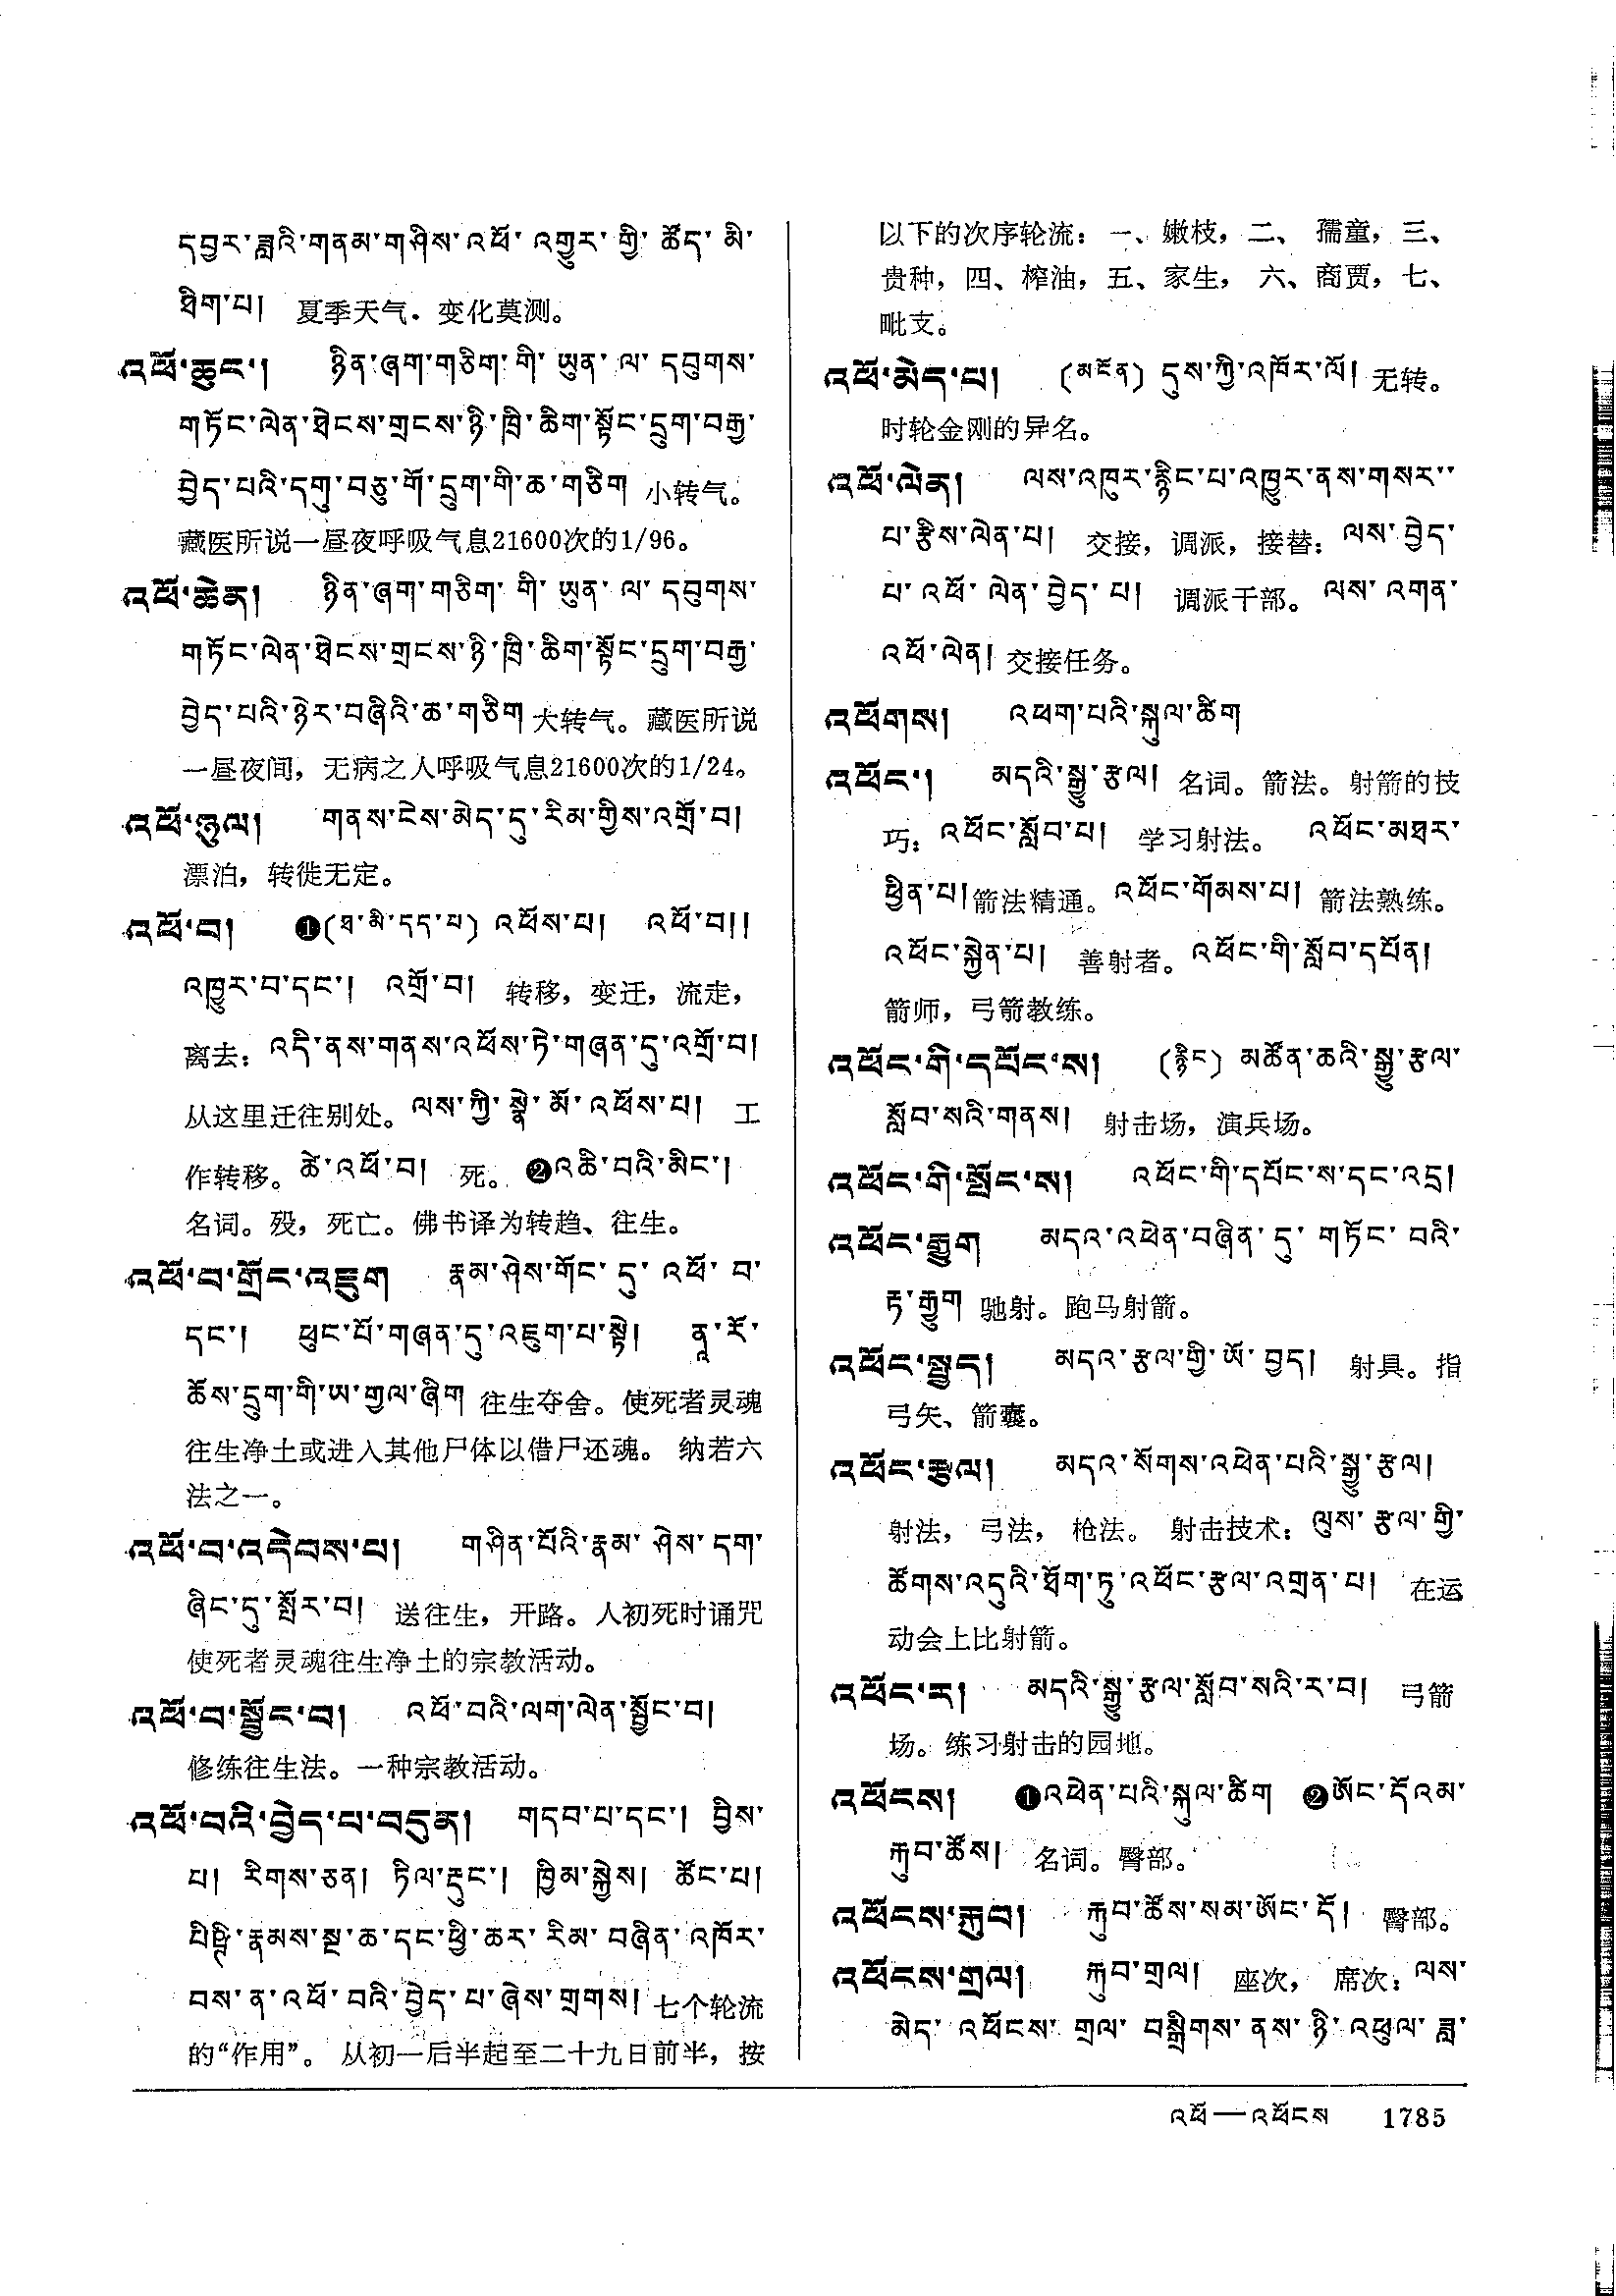 དབྱར་ཟླའི་གནམ་གཤིས་འཕོ་འགྱུར་གྱི་ཚོད་མི་
ཐིག་པ། 夏季天气．变化莫测。
འཕོ་ཆུང་། ཉིན་ཞག་གཅིག་གི་ཡུན་ལ་དབུགས་
གཏོང་ལེན་ཐེངས་གྲངས་ཉི་ཁྲི་ཆིག་སྟོང་དྲུག་བརྒྱ་
བྱེད་པའི་དགུ་བཅུ་གོ་དྲུག་གི་ཆ་གཅིག 小转气。
藏医所说一昼夜呼吸气息21600次的1/96。
འཕོ་ཆེན། ཉིན་ཞག་གཅིག་གི་ཡུན་ལ་དབུགས་
གཏོང་ལེན་ཐེངས་གྲངས་ཉི་ཁྲི་ཆིག་སྟོང་དྲུག་བརྒྱ་
བྱེད་པའི་ཉེར་བཞིའི་ཆ་གཅིག 大转气。藏医所说
一昼夜间，无病之人呼吸气息21600次的1/24。
འཕོ་ཉུལ། གནས་ངེས་མེད་དུ་རིམ་གྱིས་འགྲོ་བ།
漂泊，转徙无定。
འཕོ་བ། ❶(ཐ་མི་དད་པ) འཕོས་པ། འཕོ་བ།།
འཁྱུར་བ་དང་། འགྲོ་བ། 转移，变迁，流走，
离去：འདི་ནས་གནས་འཕོས་ཏེ་གཞན་དུ་འགྲོ་བ།
从这里迁往别处。ལས་ཀྱི་སྣེ་མོ་འཕོས་པ། 工
作转移。ཚེ་འཕོ་བ། 死。❷འཆི་བའི་མིང་།
名词。殁，死亡。佛书译为转趋、往生。
འཕོ་བ་གྲོང་འཇུག རྣམ་ཤེས་གོང་དུ་འཕོ་བ་
དང་། ཕུང་པོ་གཞན་དུ་འཇུག་པ་སྟེ། ནཱ་རོ་
ཆོས་དྲུག་གི་ཡ་གྱལ་ཞིག 往生夺舍。使死者灵魂
往生净土或进入其他尸体以借尸还魂。 纳若六
法之一。
འཕོ་བ་འདེབས་པ། གཤིན་པོའི་རྣམ་ཤེས་དག་
ཞིང་དུ་སྤོར་བ། 送往生，开路。人初死时诵咒
使死者灵魂往生净土的宗教活动。
འཕོ་བ་སྦྱོང་བ། འཕོ་བའི་ལག་ལེན་སྦྱོང་བ།
修练往生法。一种宗教活动。
འཕོ་བའི་བྱེད་པ་བདུན། གདབ་པ་དང་། བྱིས་
པ། རིགས་ཅན། ཏིལ་རྡུང་། ཁྱིམ་སྐྱེས། ཚོང་པ།
པིཥྚི་རྣམས་སྔ་ཆ་དང་ཕྱི་ཆར་རིམ་བཞིན་འཁོར་
བས་ན་འཕོ་བའི་བྱེད་པ་ཞེས་གྲགས། 七个轮流
的“作用”。 从初一后半起至二十九日前半，按
以下的次序轮流：一、嫩枝，二、孺童，三、
贵种，四、榨油，五、家生，六、商贾，七、
毗支。
འཕོ་མེད་པ། (མངོན) དུས་ཀྱི་འཁོར་ལོ། 无转。
时轮金刚的异名。
འཕོ་ལེན། ལས་འཁུར་རྙིང་པ་འཁྱུར་ནས་གསར་་
པ་རྩིས་ལེན་པ། 交接，调派，接替：ལས་བྱེད་
པ་འཕོ་ལེན་བྱེད་པ། 调派干部。ལས་འགན་
འཕོ་ལེན། 交接任务。
འཕོགས། འཕག་པའི་སྐུལ་ཚིག
འཕོང་། མདའི་སྒྱུ་རྩལ། 名词。箭法。射箭的技
巧：འཕོང་སློབ་པ། 学习射法。 འཕོང་མཐར་
ཕྱིན་པ།箭法精通。འཕོང་གོམས་པ། 箭法熟练。
འཕོང་སྐྱེན་པ། 善射者。འཕོང་གི་སློབ་དཔོན།
箭师，弓箭教练。
འཕོང་གི་དཔོང་ས། (རྙིང) མཚོན་ཆའི་སྒྱུ་རྩལ་
སློབ་སའི་གནས། 射击场，演兵场。
འཕོང་གི་སྤོང་ས། འཕོང་གི་དཔོང་ས་དང་འདྲ།
འཕོང་རྒྱུག མདའ་འཕེན་བཞིན་དུ་གཏོང་བའི་
རྟ་རྒྱུག 驰射。跑马射箭。
འཕོང་སྤྱད། མདའ་རྩལ་གྱི་ཡོ་བྱད། 射具。指
弓矢、箭囊。
འཕོང་རྩལ། མདའ་སོགས་འཕེན་པའི་སྒྱུ་རྩལ།
射法，弓法，枪法。 射击技术：ལུས་རྩལ་གྱི་
ཚོགས་འདུའི་ཐོག་ཏུ་འཕོང་རྩལ་འགྲན་པ། 在运
动会上比射箭。
འཕོང་ར། མདའི་སྒྱུ་རྩལ་སློབ་སའི་ར་བ། 弓箭
场。练习射击的园地。
འཕོངས། ❶འཕེན་པའི་སྐུལ་ཚིག ❷ཨོང་དོའམ་
རྐུབ་ཚོས། 名词。臀部。
འཕོངས་རྐུབ། རྐུབ་ཚོས་སམ་ཨོང་དོ། 臀部。
འཕོངས་གྲལ། རྐུབ་གྲལ། 座次， 席次：ལས་
མེད་འཕོངས་གྲལ་བསྒྲིགས་ནས་ཉི་འཕུལ་ཟླ་
འཕོ—འཕོངས 1785